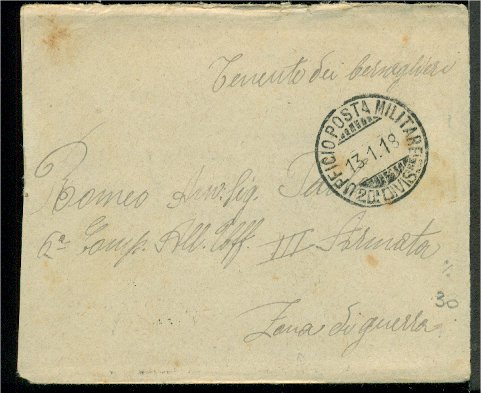 Tenente dei bersaglieri
UFFICIO POSTA MILITARE
13.1.18
20ª DIVIS
Romeo
2ª Comp. All. Uff. III Armata
%
30
Zona di guerra